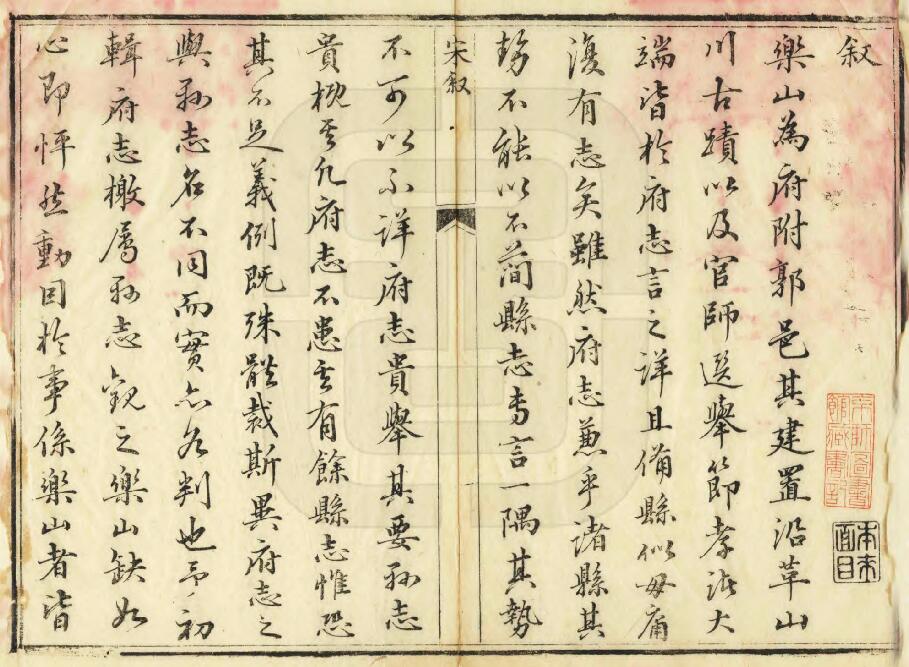 叙
樂山為府附郭邑其建置沿革山
川古蹟以及官師選舉節孝諸大
端皆於府志言之詳且備縣似毋庸
復有志矣雖然府志兼乎諸縣其
勢不能以不簡縣志專言一隅其勢
宋叙
不可以不詳府志貴舉其要縣志
貴枕其凡府志不患其有餘縣志惟恐
其不足義例既殊體裁斯異府志之
與縣志名不同而實亦各判也予初
輯府志檄屬縣志觀之樂山缺如
心即怦然動因於事係樂山者皆
本來面目